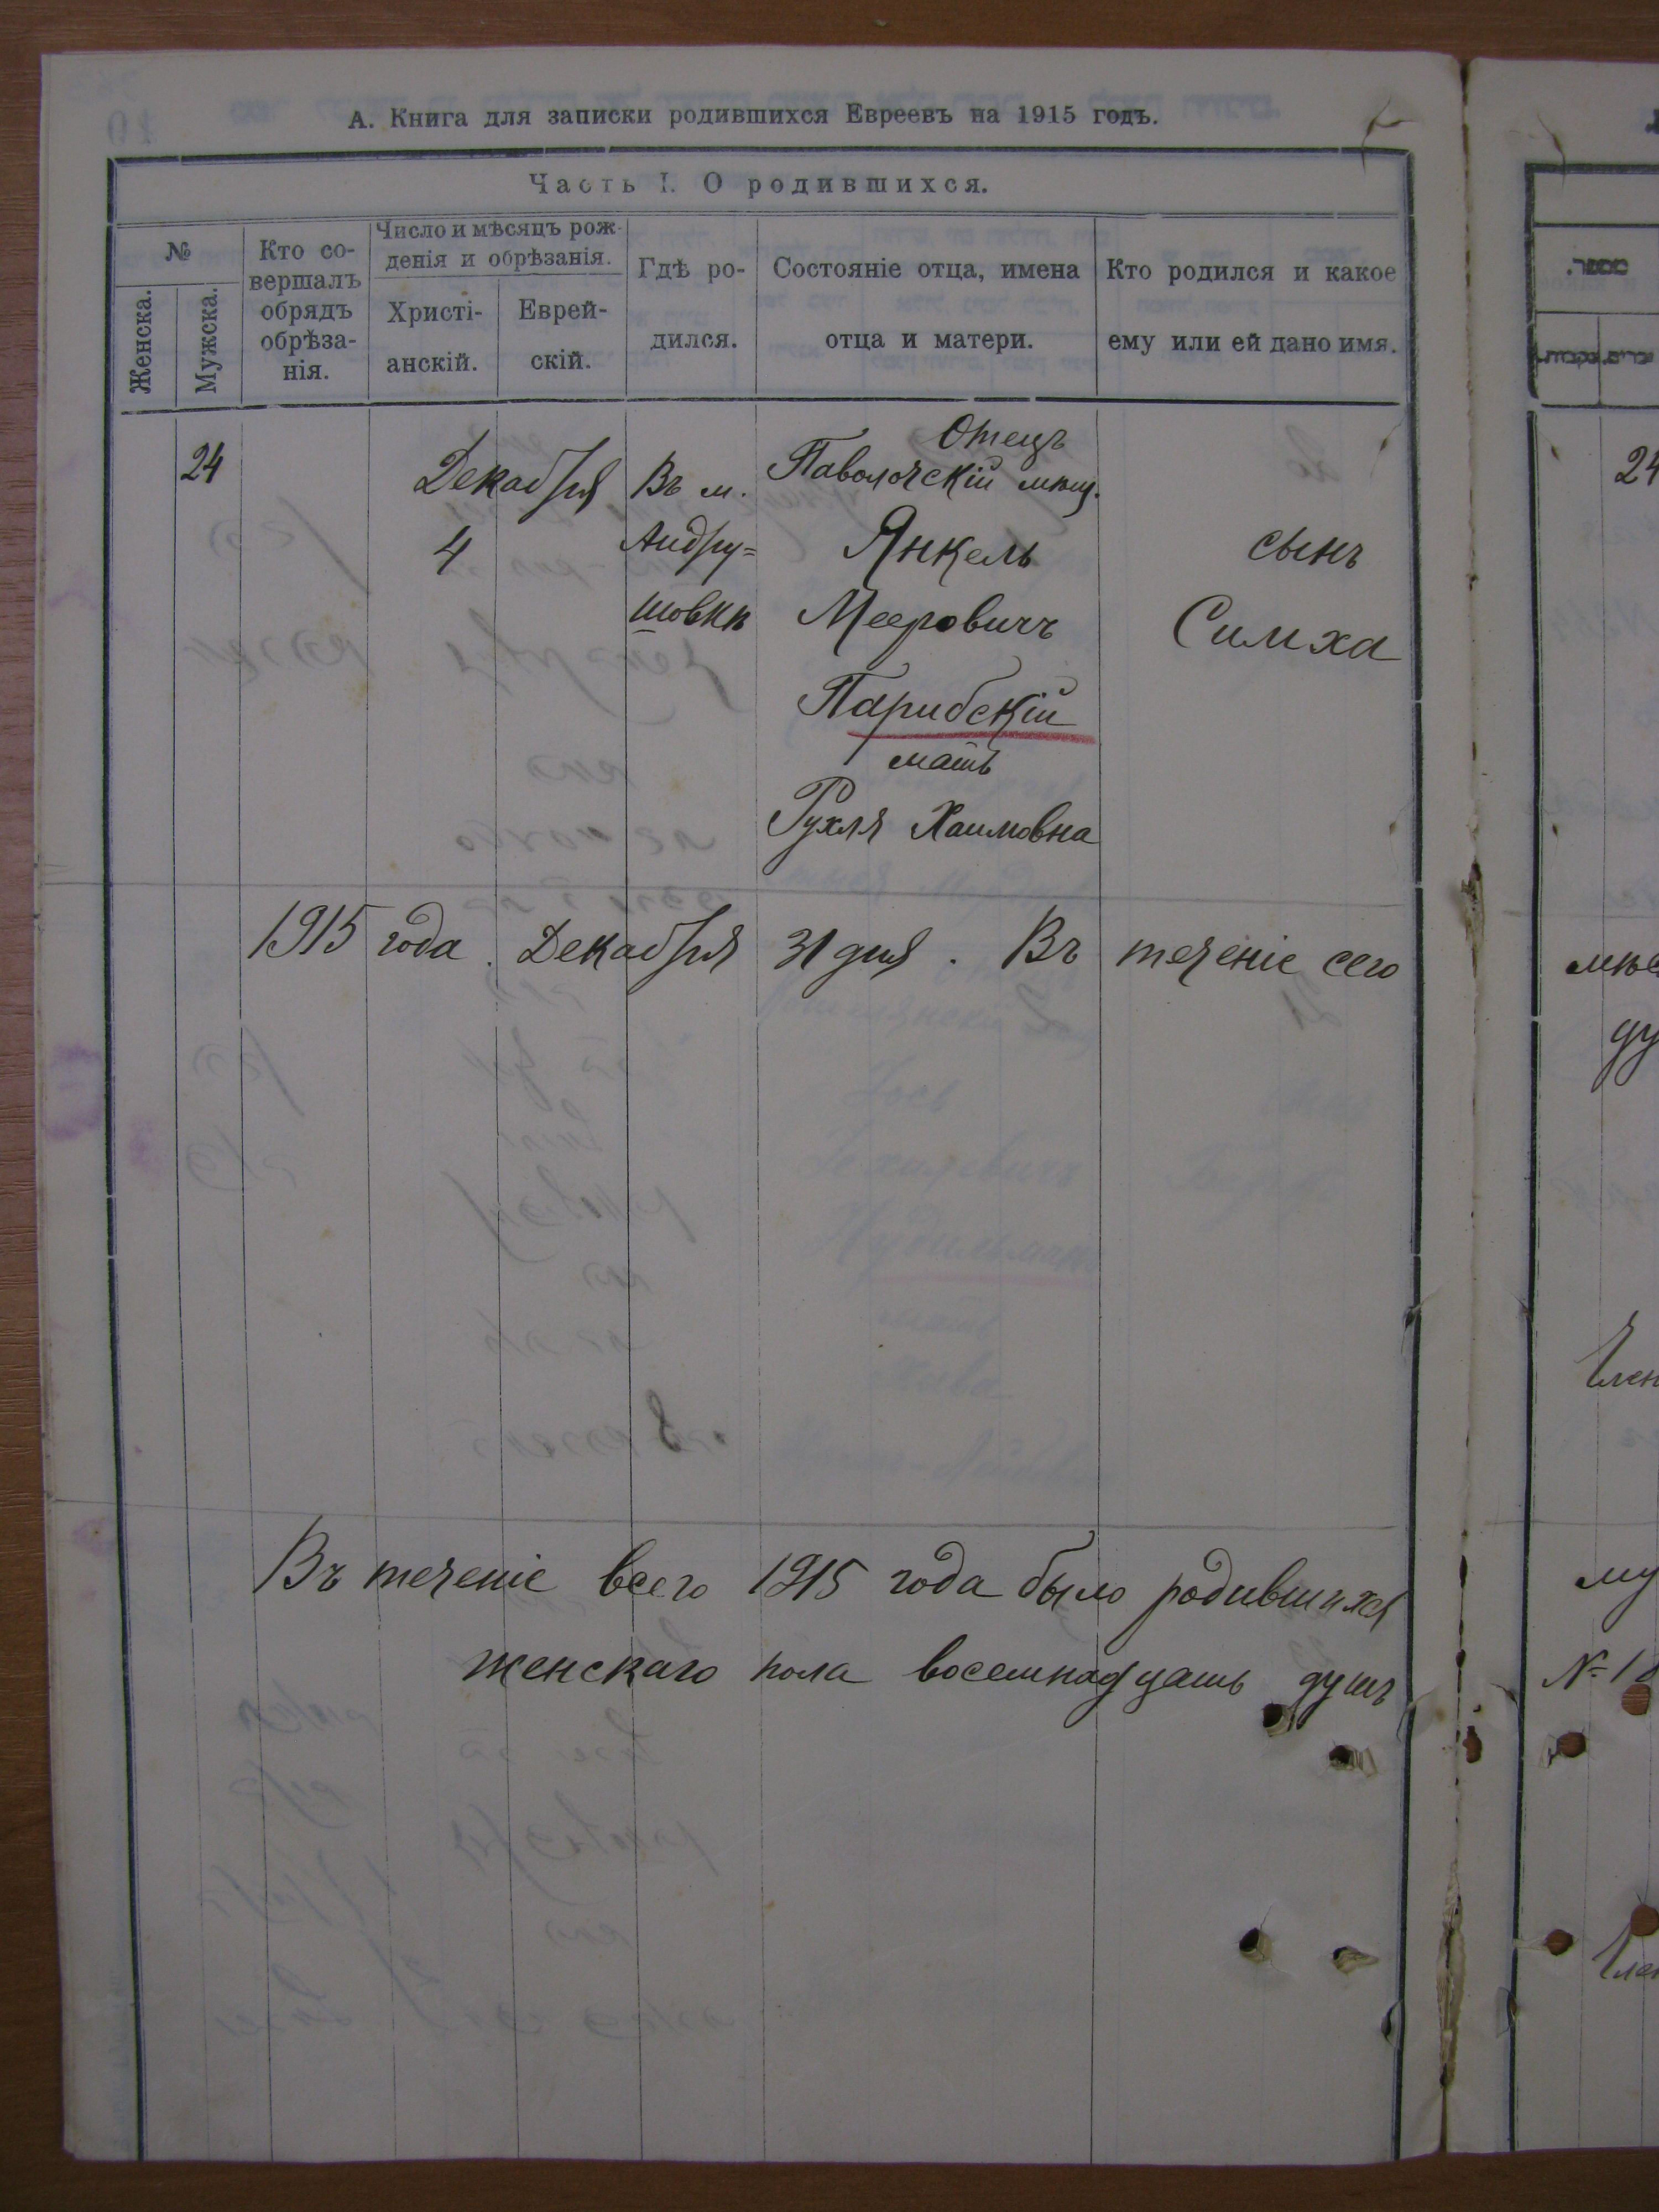 А. Книга для записки родившихся Евреевъ на 1915 годъ.
Часть I. О родившихся.
№
Женска.
Мужска.
Кто со-
вершалъ
обрядъ
обрѣза-
нія.
Число и мѣсяцъ рож-
денія и обрѣзанія.
Христі-
анскій.
Еврей-
скій.
Гдѣ ро-
дился.
Состояніе отца, имена
отца и матери.
Кто родился и какое
ему или ей дано имя.
24
Декабря
4
Въ м.
Андру=
шовкѣ
Отецъ
Паволочскій мѣщ.
Янкель
Мееровичъ
Парибскій
мать
Рухля Хаимовна
сынъ
Симха
1915 года. Декабря 31 дня. Въ теченіе сего
Въ теченіе всего 1915 года было родившихся
женскаго пола восемнадцать душъ
24
ду
Член
му
№ 18
Член